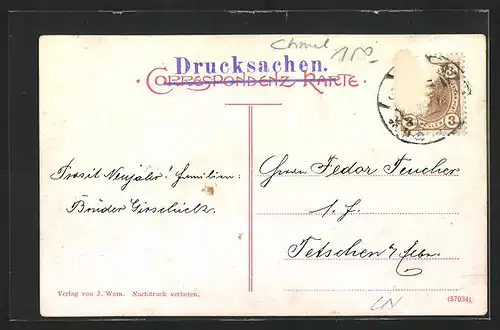 Chmel
Drucksachen.
CORRESPONDENZ-KARTE.
3 3
Prosit Neujahr! Familien:
Brüder Girschick.
Herrn Fedor Teucher
Tetschen a/Elbe.
Verlag von J. Warn. Nachdruck verboten.
(57034)